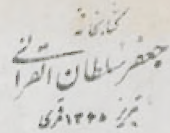 کتابخانه
جعفر سلطان القرائی
تبریز ۱۳۴۰ قمری